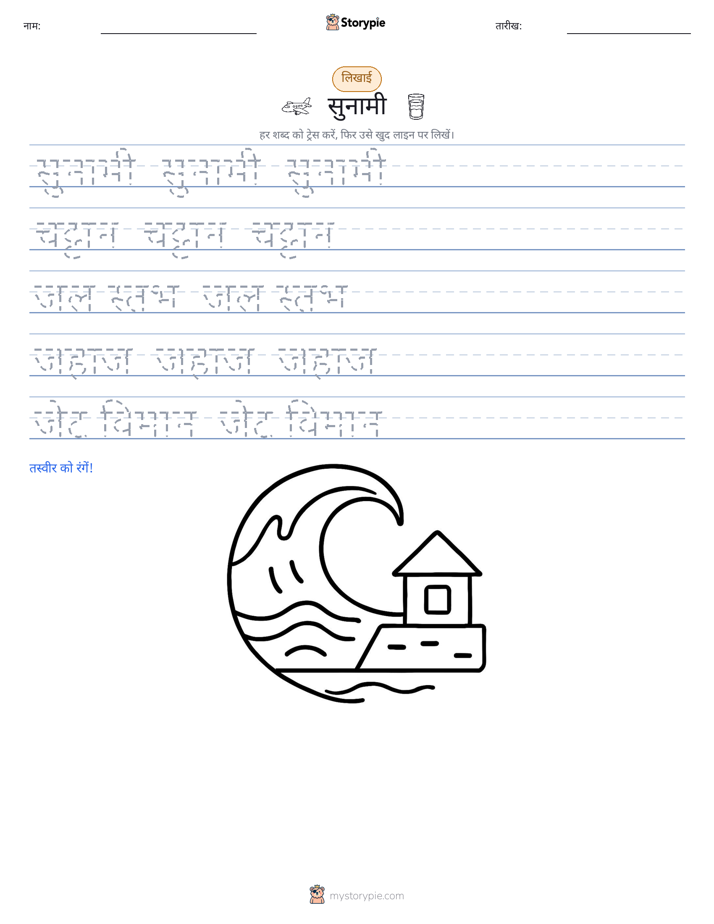 नाम:
Storypie
तारीख:
लिखाई
सुनामी
हर शब्द को ट्रेस करें, फिर उसे खुद लाइन पर लिखें।
सुनामी सुनामी सुनामी
चट्टान चट्टान चट्टान
जल स्तंभ जल स्तंभ
जहाज जहाज जहाज
जेट विमान जेट विमान
तस्वीर को रंगें!
mystorypie.com